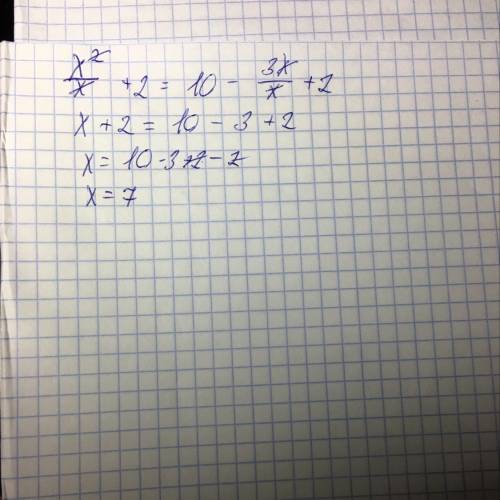 x²/x + 2 = 10 - 3x/x + 2
x + 2 = 10 - 3 + 2
x = 10 - 3 + 2 - 2
x = 7